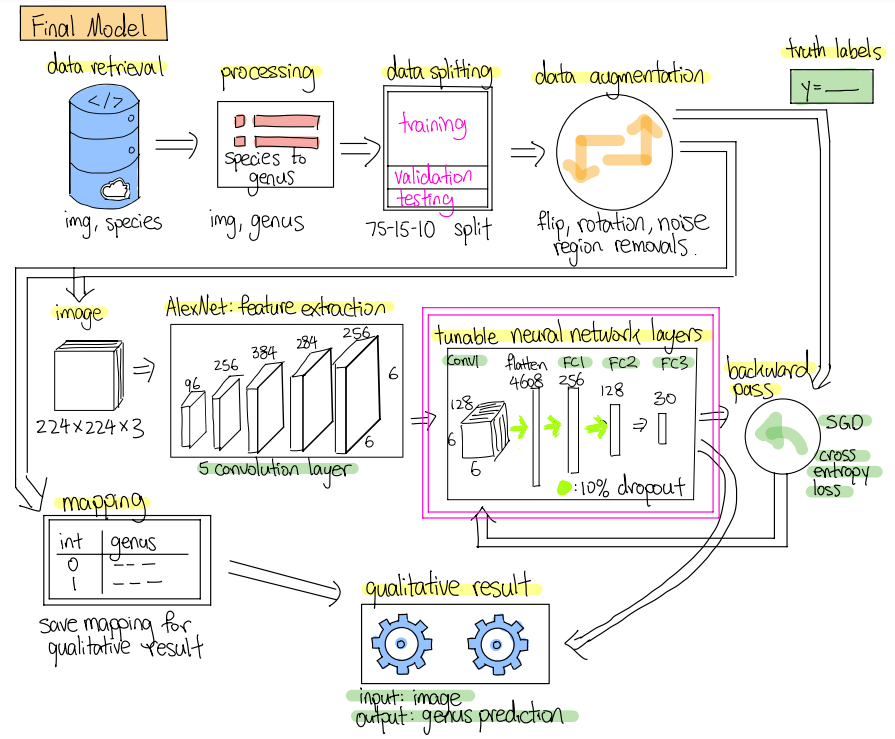 Final Model
data retrieval
</>
img, species
processing
species to
genus
img, genus
data splitting
training
validation
testing
75-15-10 split
data augmentation
flip, rotation, noise
region removals.
truth labels
y= __
image
224×224×3
AlexNet: feature extraction
96
256
384
284
256
6
6
5 convolution layer
tunable neural network layers
Conv1
flatten
4608
FC1
256
FC2
128
FC3
30
128
6
6
:10% dropout
backward
pass
SGD
cross
entropy
loss
mapping
int genus
0 ---
1 ---
save mapping for
qualitative result
qualitative result
input: image
output: genus prediction